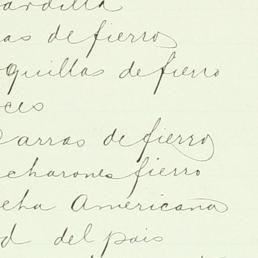 ardilla
as de fierro
oquillas de fierro
oces
arras de fierro
charones fierro
cha Americana
d del pais